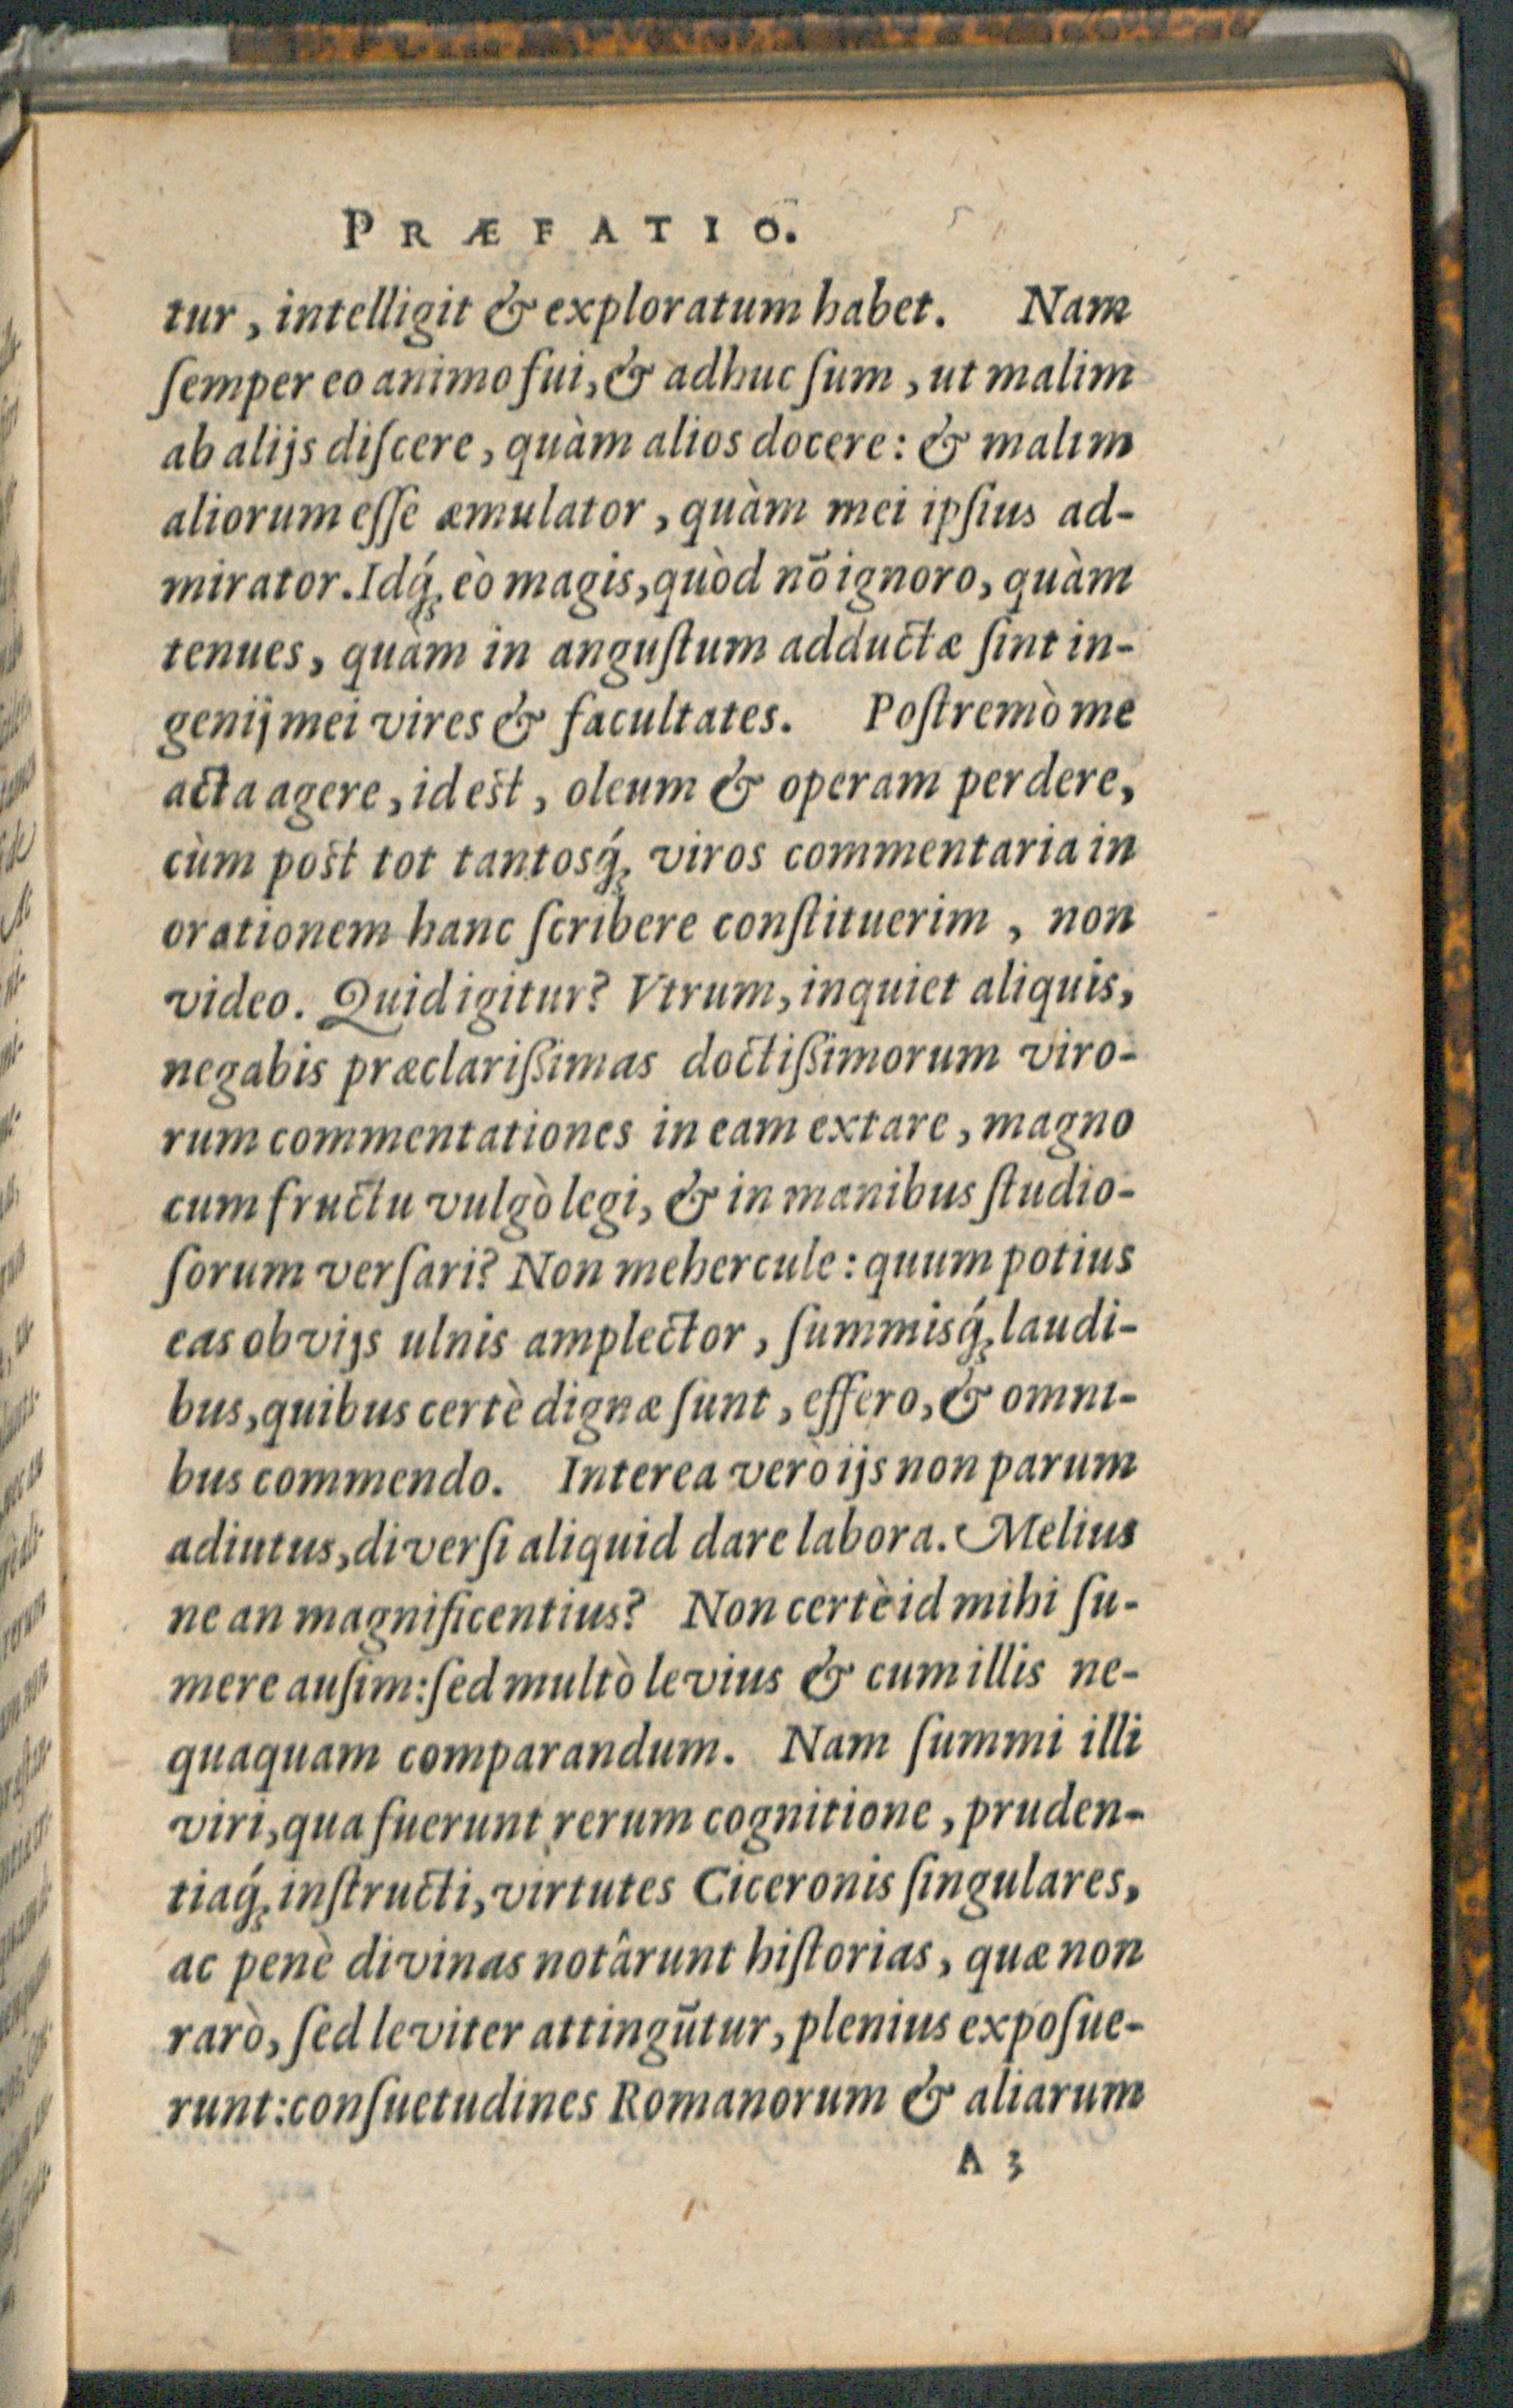 PRÆFATIO.
tur, intelligit & exploratum habet. Nam
ſemper eo animo fui, & adhuc ſum, ut malim
ab alijs diſcere, quàm alios docere: & malim
aliorum eſſe æmulator, quàm mei ipſius ad-
mirator. Idq́; eò magis, quòd nō ignoro, quàm
tenues, quàm in anguſtum adductæ ſint in-
genij mei vires & facultates. Poſtremò me
acta agere, id est, oleum & operam perdere,
cùm post tot tantosq́; viros commentaria in
orationem hanc ſcribere conſtituerim, non
video. Quid igitur? Vtrum, inquiet aliquis,
negabis præclariſſimas doctiſſimorum viro-
rum commentationes in eam extare, magno
cum fructu vulgò legi, & in manibus ſtudio-
ſorum verſari? Non mehercule: quum potius
eas obvijs ulnis amplector, ſummisq́; laudi-
bus, quibus certè dignæ ſunt, effero, & omni-
bus commendo. Interea verò ijs non parum
adiutus, diverſi aliquid dare labora. Melius
ne an magnificentius? Non certè id mihi ſu-
mere auſim: ſed multò levius & cum illis ne-
quaquam comparandum. Nam ſummi illi
viri, qua fuerunt rerum cognitione, pruden-
tiaq́; inſtructi, virtutes Ciceronis ſingulares,
ac penè divinas notârunt hiſtorias, quæ non
rarò, ſed leviter attingūtur, plenius expoſue-
runt: conſuetudines Romanorum & aliarum
A 3